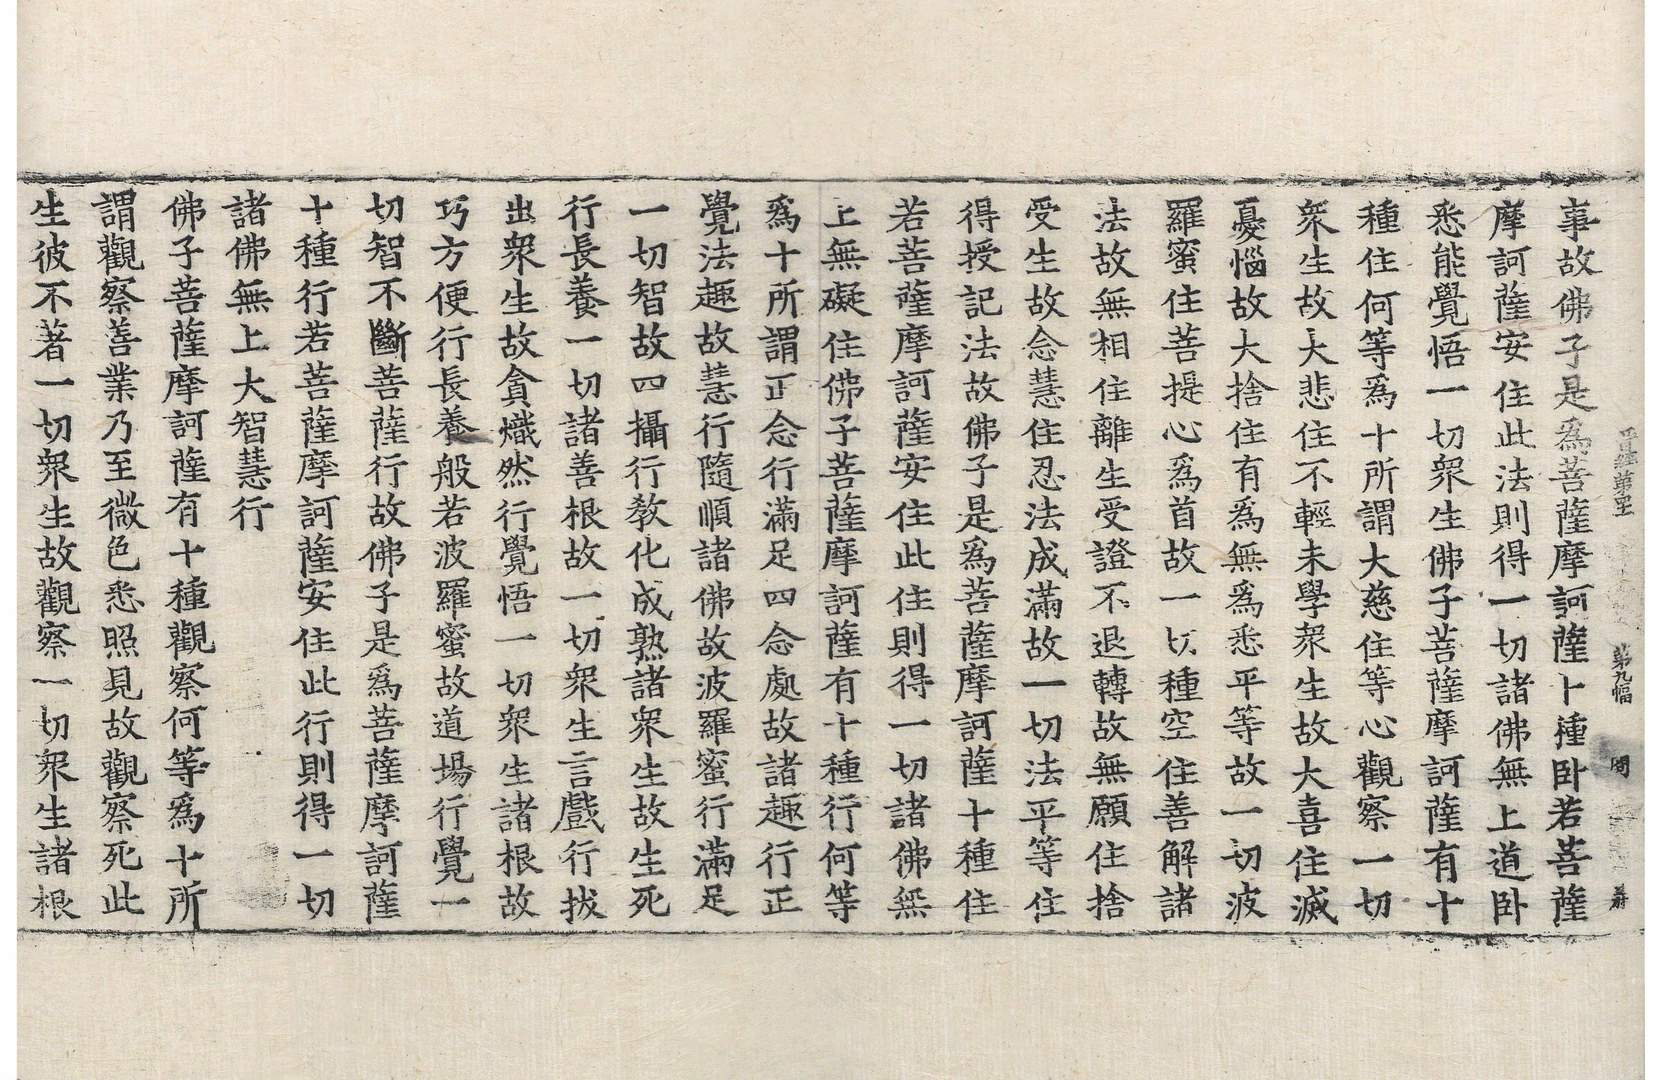 晋經第 第九幅 問 蔣
事故佛子是爲菩薩摩訶薩十種卧若菩薩
摩訶薩安住此法則得一切諸佛無上道卧
悉能覺悟一切衆生佛子菩薩摩訶薩有十
種住何等爲十所謂大慈住等心觀察一切
衆生故大悲住不輕未學衆生故大喜住滅
憂惱故大捨住有爲無爲悉平等故一切波
羅蜜住菩提心爲首故一切種空住善解諸
法故無相住離生受證不退轉故無願住捨
受生故念慧住忍法成滿故一切法平等住
得授記法故佛子是爲菩薩摩訶薩十種住
若菩薩摩訶薩安住此住則得一切諸佛無
上無礙住佛子菩薩摩訶薩有十種行何等
爲十所謂正念行滿足四念處故諸趣行正
覺法趣故慧行隨順諸佛故波羅蜜行滿足
一切智故四攝行教化成熟諸衆生故生死
行長養一切諸善根故一切衆生言戲行拔
出衆生故貪熾然行覺悟一切衆生諸根故
巧方便行長養般若波羅蜜故道場行覺一
切智不斷菩薩行故佛子是爲菩薩摩訶薩
十種行若菩薩摩訶薩安住此行則得一切
諸佛無上大智慧行
佛子菩薩摩訶薩有十種觀察何等爲十所
謂觀察善業乃至微色悉照見故觀察死此
生彼不著一切衆生故觀察一切衆生諸根